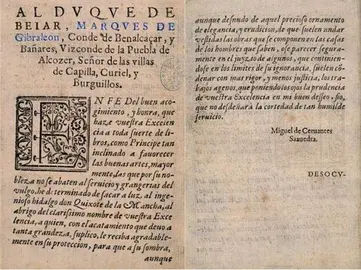 AL DVQVE DE
BEIAR, MARQVES DE
Gibraleon, Conde de Benalcaçar, y
Bañares, Vizconde de la Puebla de
Alcozer, Señor de las villas
de Capilla, Curiel, y
Burguillos.
EN FE Del buen aco-
gimiento, y honra, que
haze vuestra Excelen-
cia a toda suerte de li-
bros, como Principe tan
inclinado a fauorecer
las buenas artes, mayor
mente las que por su no-
bleza no se abaten al seruicio y grangerias del
vulgo, he determinado de sacar a luz, al inge-
nioso hidalgo don Quixote de la Mancha, al
abrigo del clarissimo nombre de vuestra Exce-
lencia, a quien, con el acatamiento que deuo a
tanta grandeza, suplico, le reciba agradable-
mente en su proteccion, para que a su sombra,
aunque
aunque desnudo de aquel precioso ornamento
de elegancia, y erudicion, de que suelen andar
vestidas las obras que se componen en las casas
de los hombres que saben, ose parecer segura-
mente en el juyzio de algunos, que continien-
dose en los limites de su ignorancia, suelen có-
denar con mas rigor, y menos justicia, los tra-
bajos agenos, que poniendo los ojos la prudencia
de vuestra Excelencia en mi buen desseo, fio,
que no desdeñará la cortedad de tan humilde
seruicio.
Miguel de Ceruantes
Saauedra.
DESOCV-